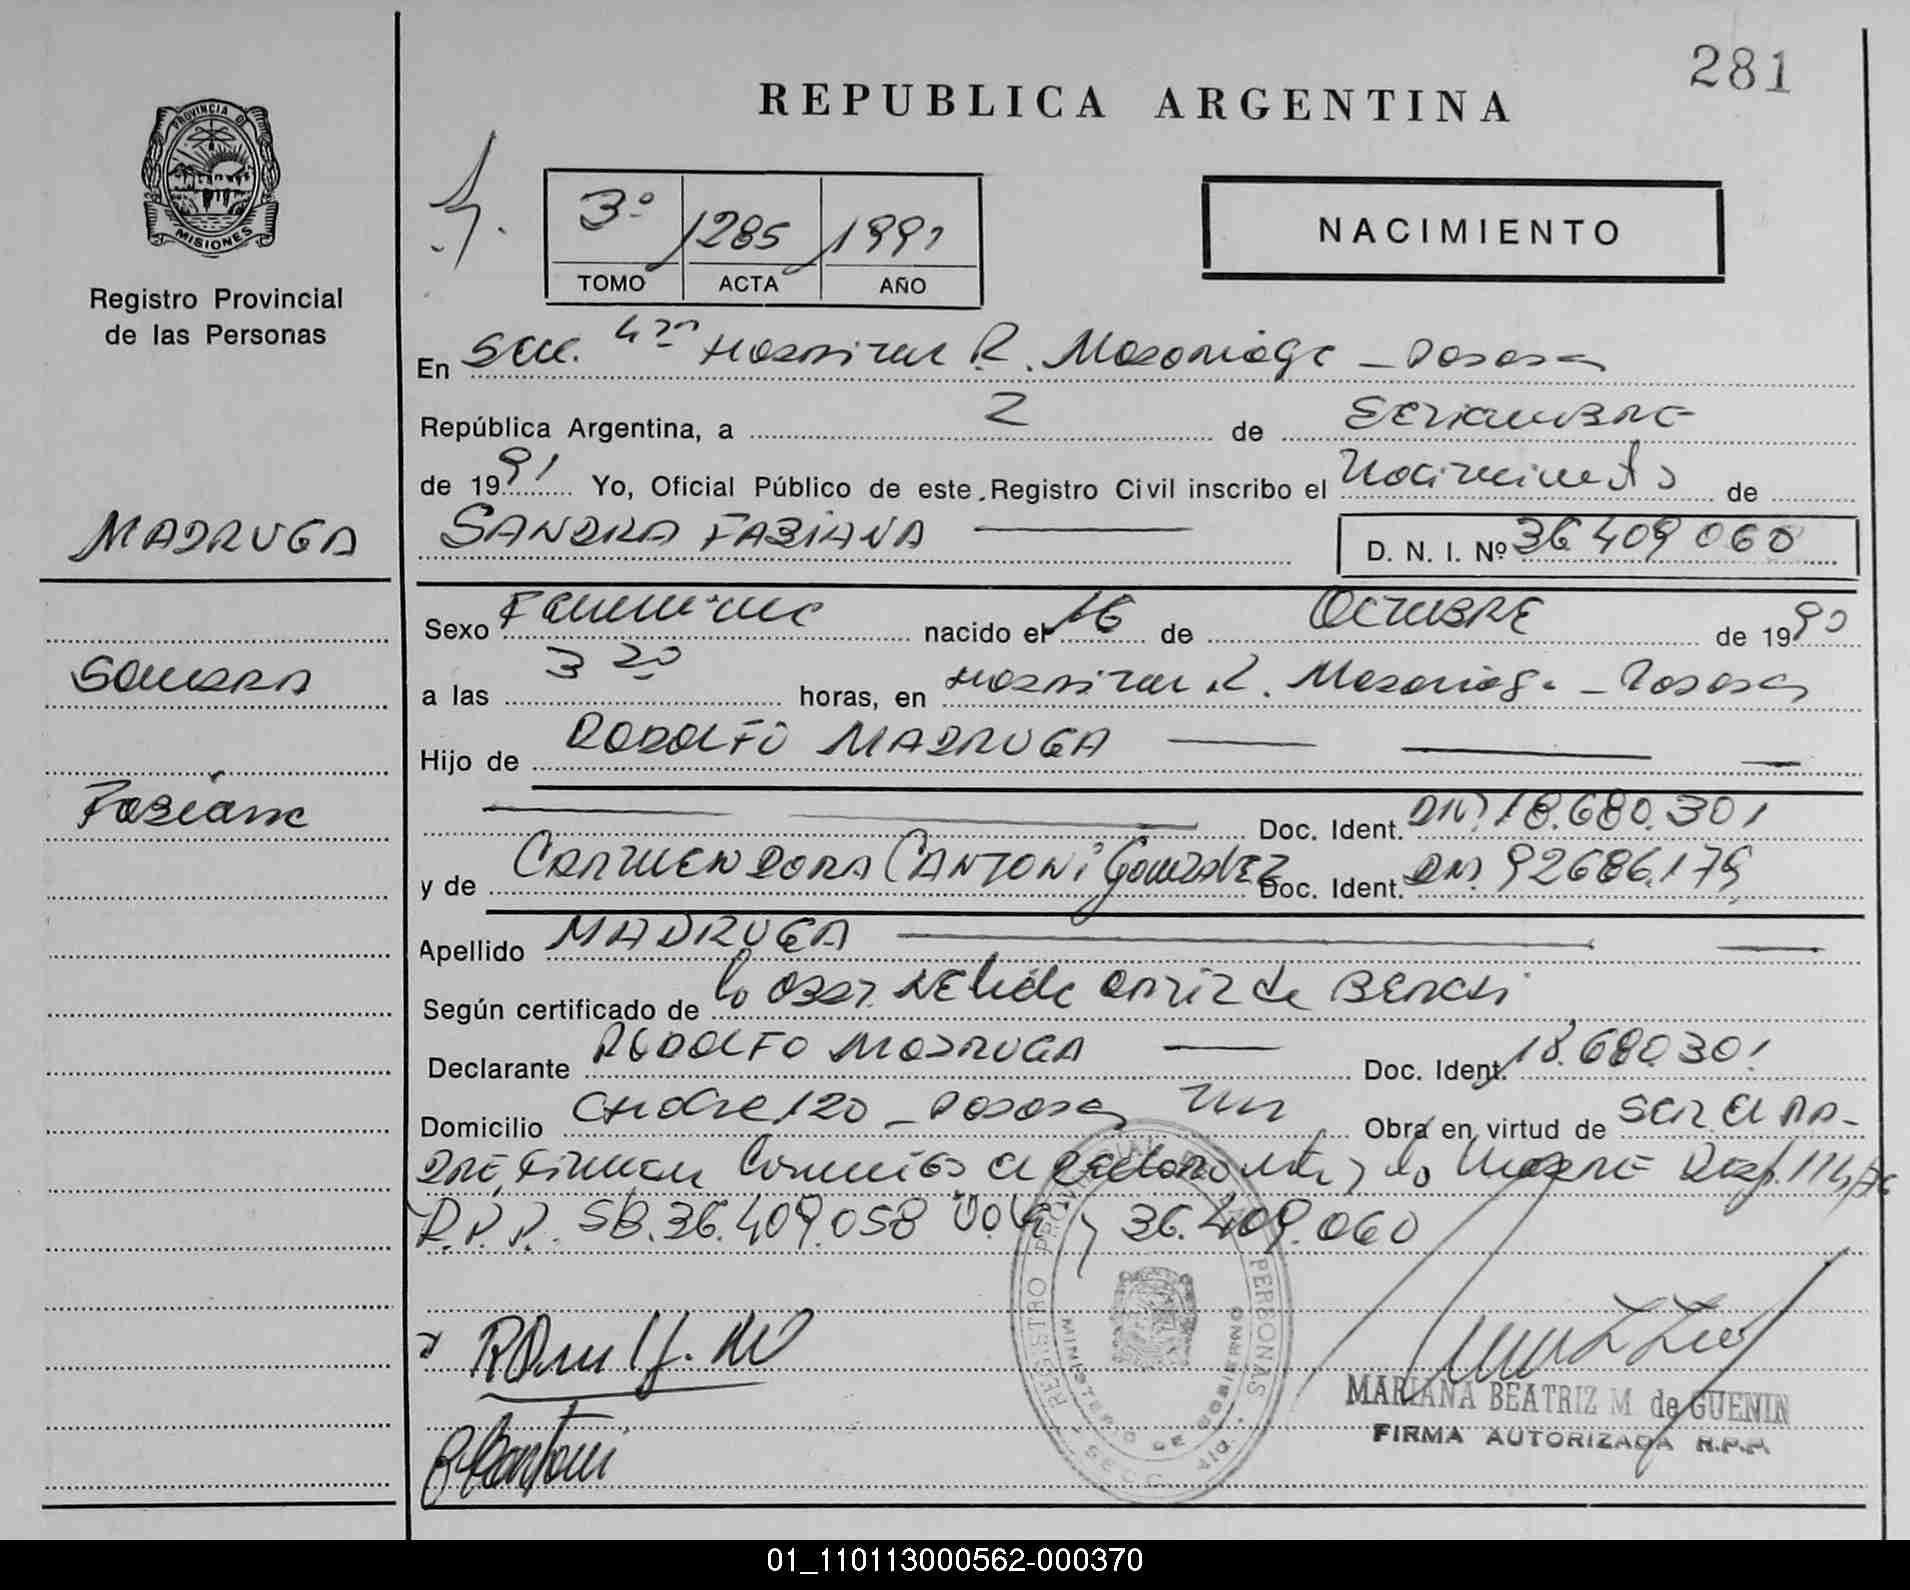 281
REPUBLICA ARGENTINA
PROVINCIA DE
MISIONES
Registro Provincial
de las Personas
3º 1285 1991
TOMO ACTA AÑO
NACIMIENTO
En Secc. 4ta Hospital R. Madariaga - Posadas
República Argentina, a 2 de SETIEMBRE
de 1991 Yo, Oficial Público de este Registro Civil inscribo el Nacimiento de
SANDRA FABIANA D. N. I. Nº 36 409 060
MADRUGA
SANDRA
Fabiana
Sexo Femenino nacido el 16 de OCTUBRE de 1990
a las 3 20 horas, en Hospital R. Madariaga - Posadas
Hijo de RODOLFO MADRUGA
Doc. Ident. DNI 18.680.301
y de CARMEN DORA CANTONI GONZALEZ Doc. Ident. DNI. 92686.179
Apellido MADRUGA
Según certificado de la Obst. NELIDA ORTIZ de
Declarante RODOLFO MADRUGA Doc. Ident. 18.680.301
Domicilio 120 - Posadas Mnes Obra en virtud de ser el PA-
DRE, Firman conmigo el declarante y la MADRE Disp. 114/76
R.P.P. SB. 36.409.058 Vale 36.409.060
REGISTRO PROVINCIAL DE LAS PERSONAS
MINISTERIO DE GOBIERNO
MARIANA BEATRIZ M. de GUENIN
FIRMA AUTORIZADA R.P.P.
Cantoni
01_110113000562-000370